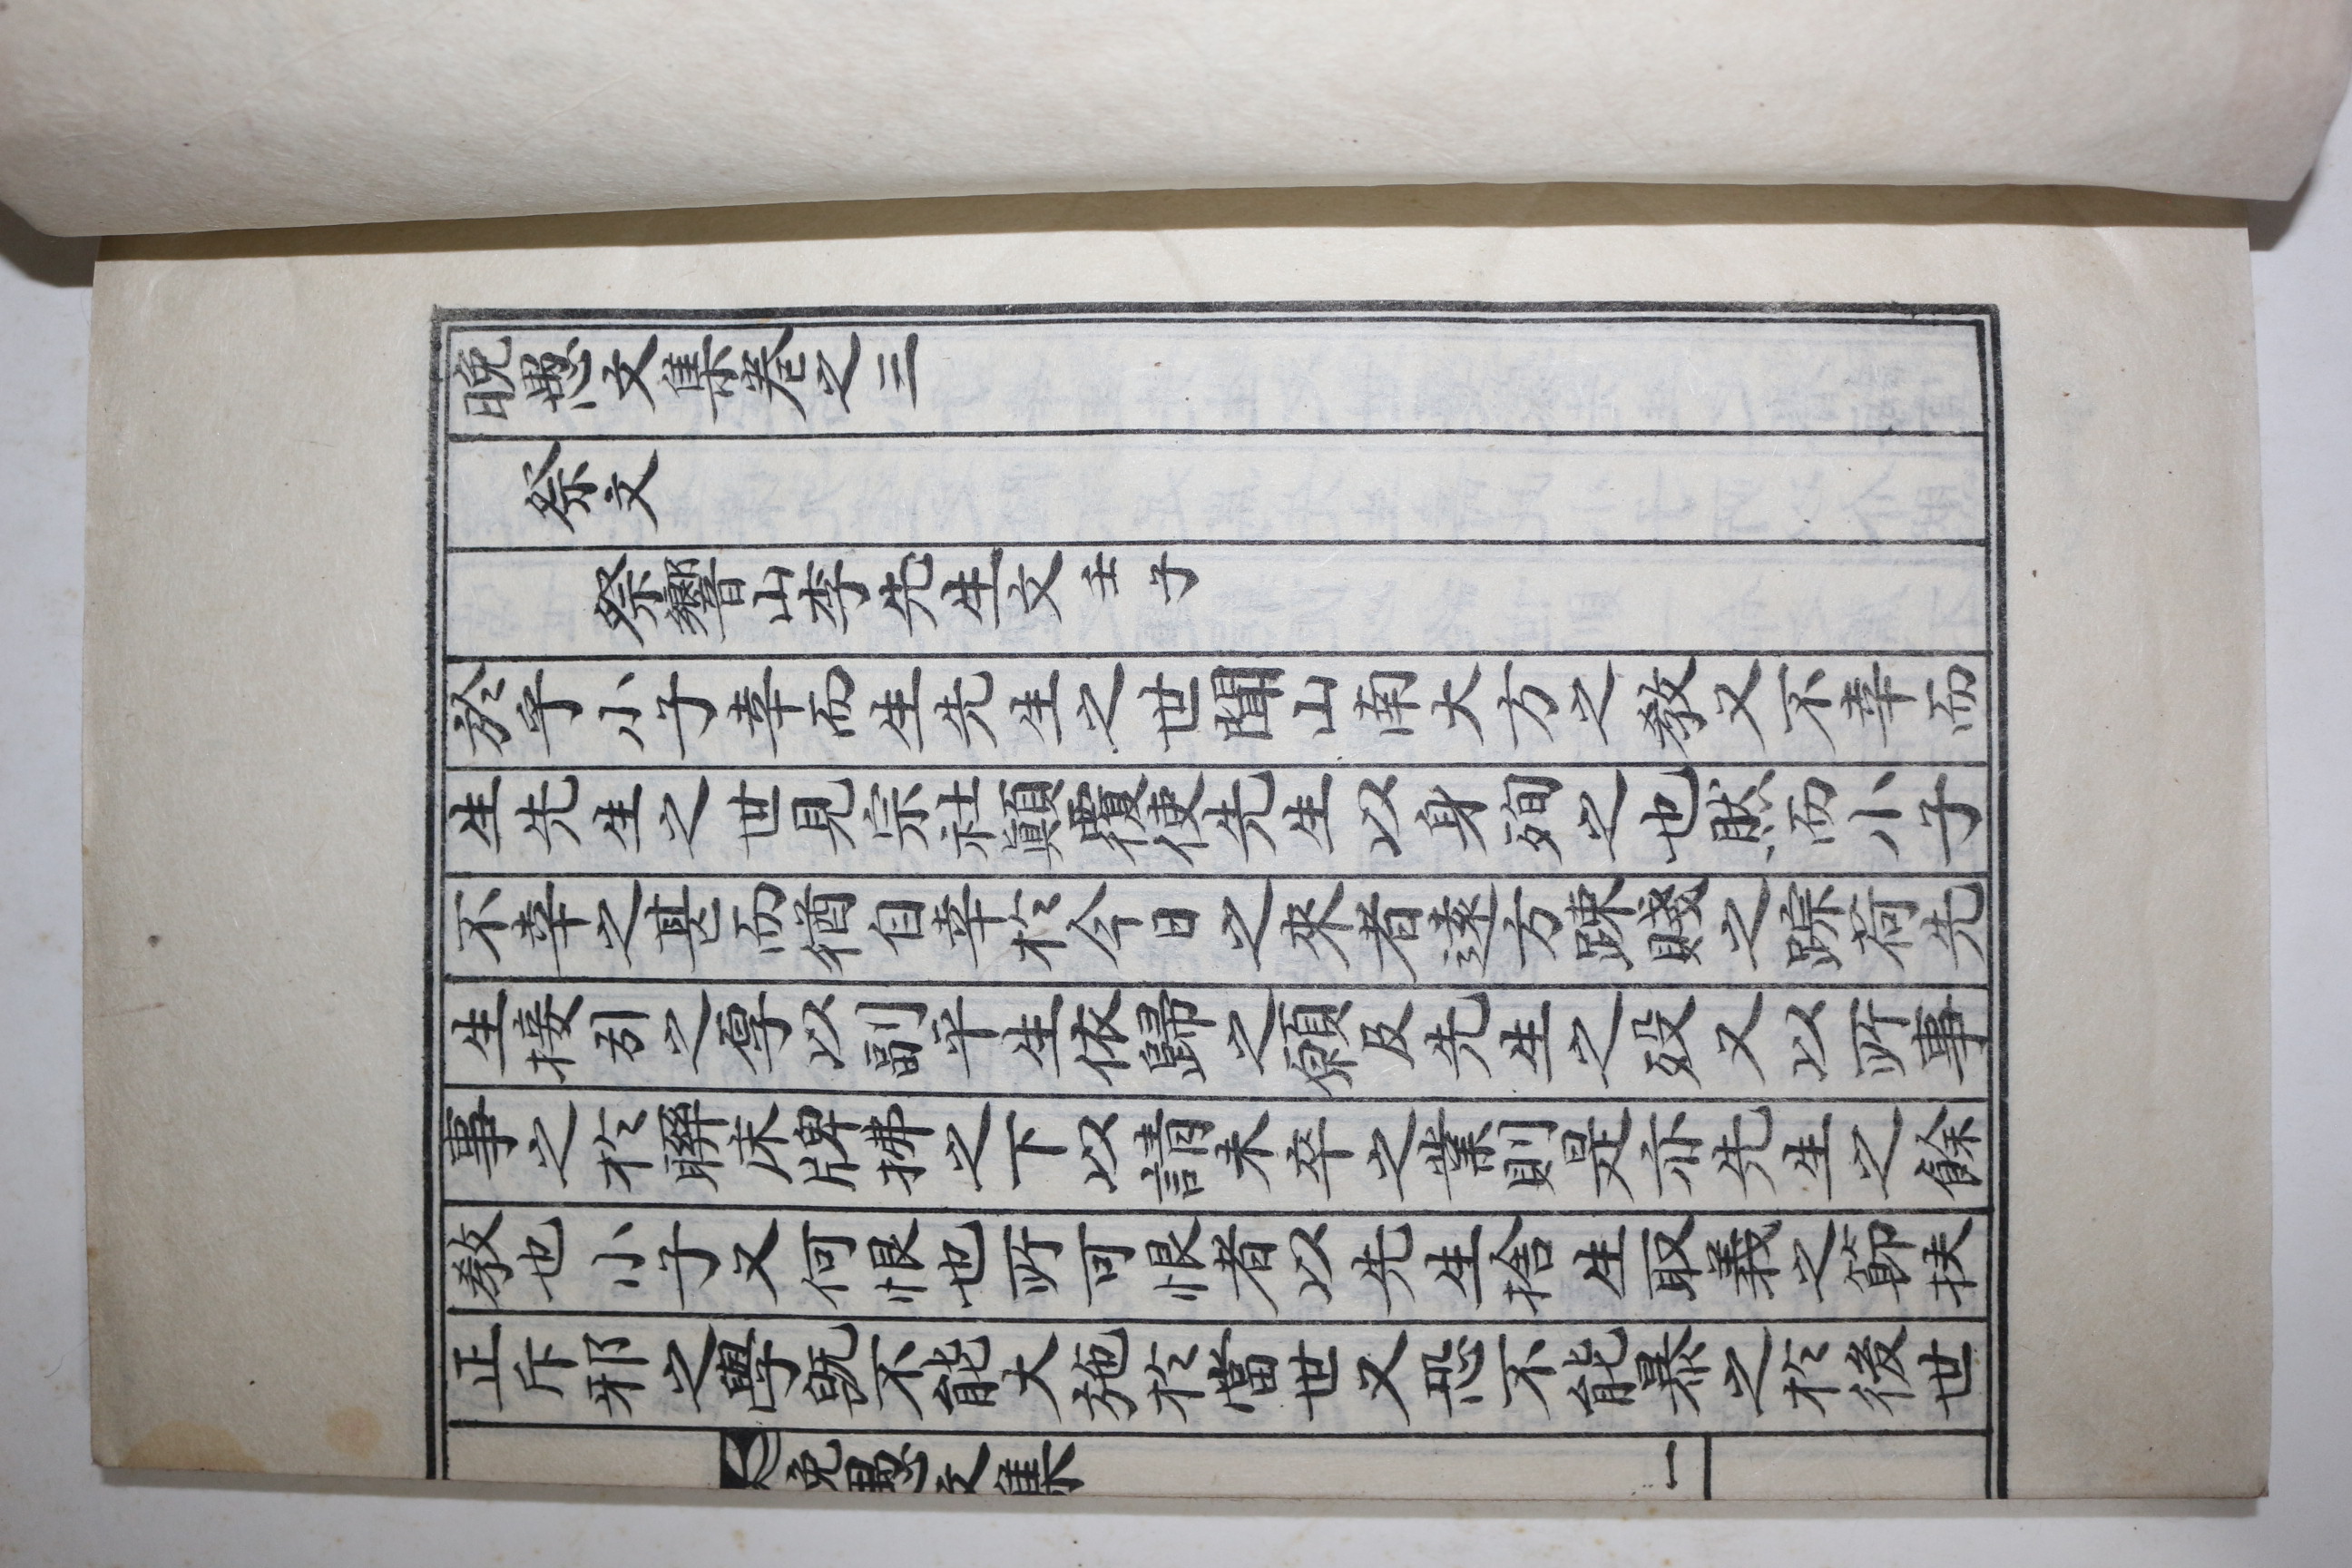 晩愚文集卷之三
祭文
祭響山李先生文 壬子
於乎小子幸而生先生之世聞山南大方之教又不幸而
生先生之世見宗社顚覆使先生以身殉之也然而小子
不幸之甚而猶自幸於今日之來者遠方踈賤之踪荷先
生接引之厚以副平生依歸之願及先生之歿又以所事
事之於聯床牌拂之下以請未卒之業則是亦先生之餘
教也小子又何恨也所可恨者以先生捨生取義之節扶
正斥邪之學旣不能大施於當世又恐不能暴之於後世
晩愚文集
一